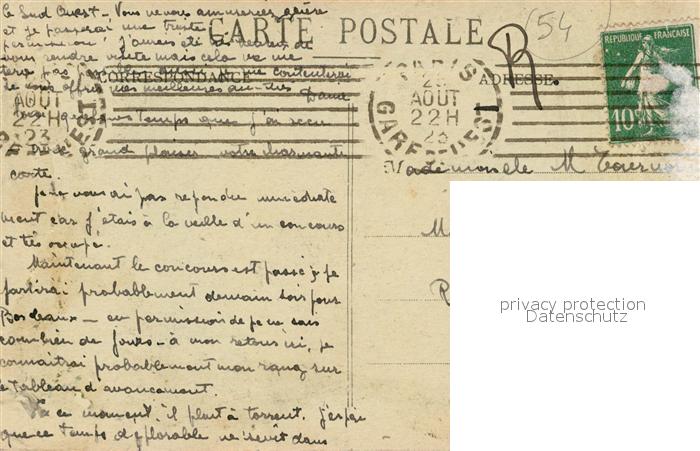 le Sud Ouest - Vous ne vous amuserez guère
et je passerai une triste
permission. J'aurais été désireux de
vous rendre visite mais cela ne me
sera pas je me contenterai
de vous offrir mes meilleures
CARTE POSTALE
CORRESPONDANCE
ADRESSE.
R
(54
REPUBLIQUE FRANÇAISE
10
PARIS
AOUT
22H
23
GARE OUEST
AOUT
22H
23
quelques temps que j'ai reçu
grand plaisir votre charmante
carte.
Je ne vous ai pas répondu immédiate
ment car j'étais à la veille d'un concours
et très occupé.
Maintenant le concours est passé, je
partirai probablement demain soir pour
Bordeaux - en permission de je ne sais
combien de jours - à mon retour ici, je
connaitrai probablement mon rang sur
le Tableau d'avancement.
En ce moment, il pleut à torrent. J'espère
que ce temps déplorable ne sévit dans
Mademoiselle M
M
R
privacy protection
Datenschutz